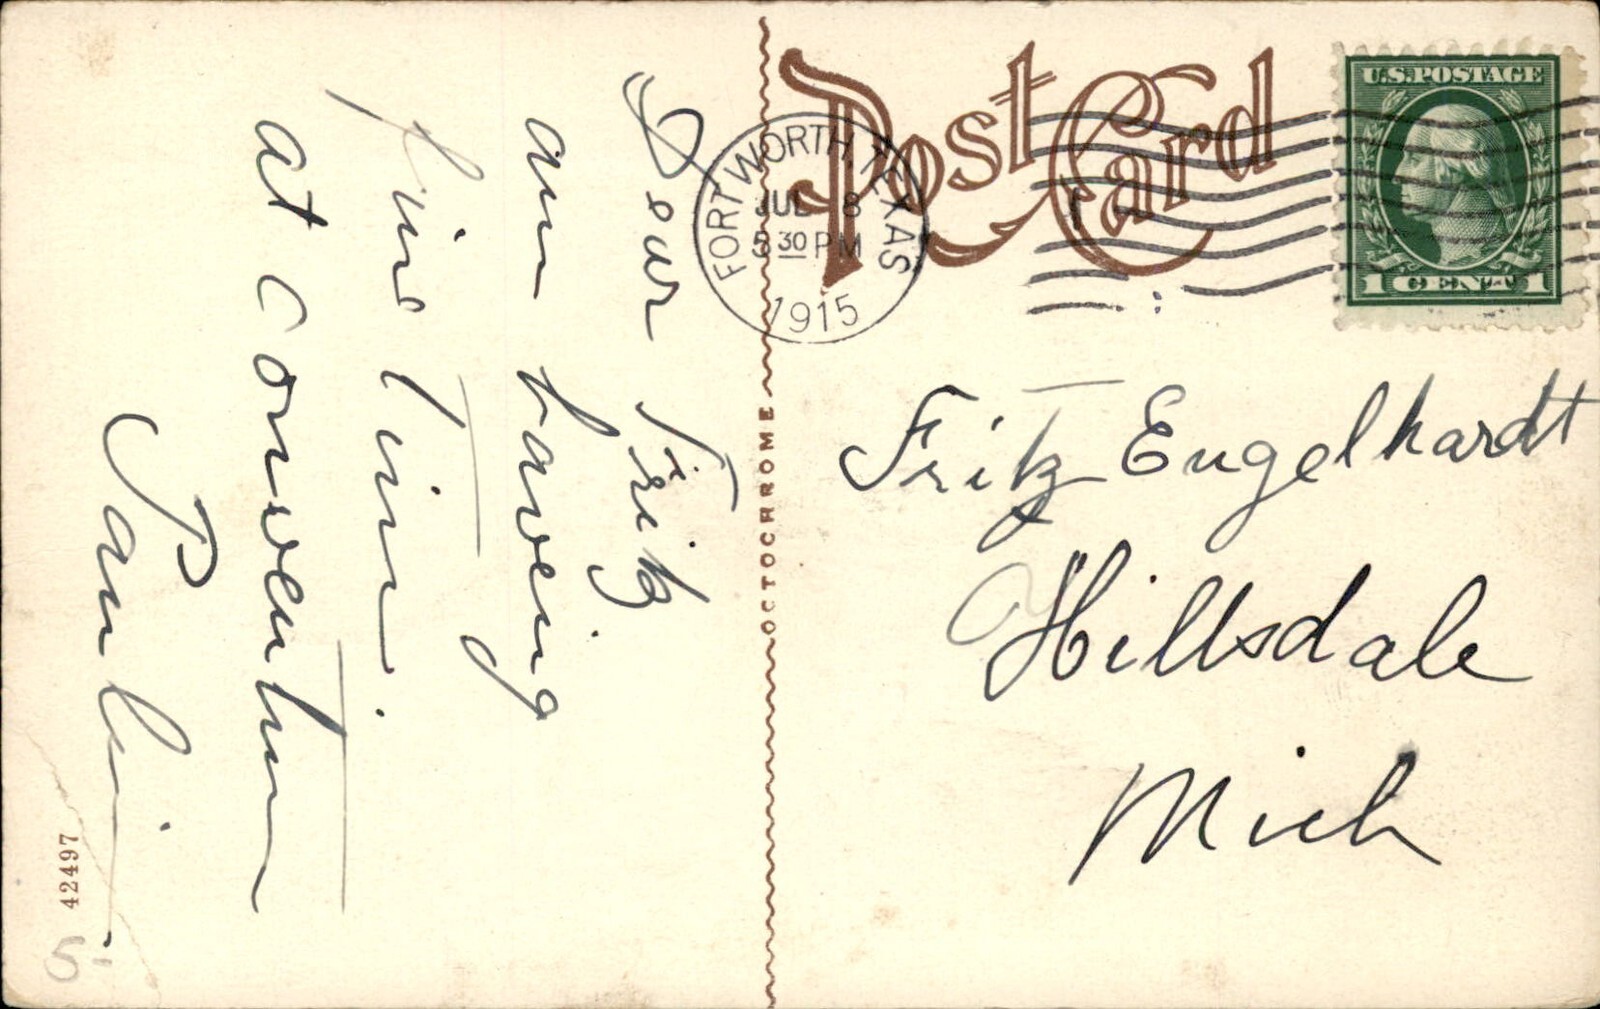 Dear Fritz
am having
fine time.
at convention
Paulin
42497
5
OCTOCHROME
Post Card
FORT WORTH TEXAS
JUL 8
5 30 PM
1915
U.S. POSTAGE
1 CENT 1
Fritz Engelhardt
Hillsdale
Mich